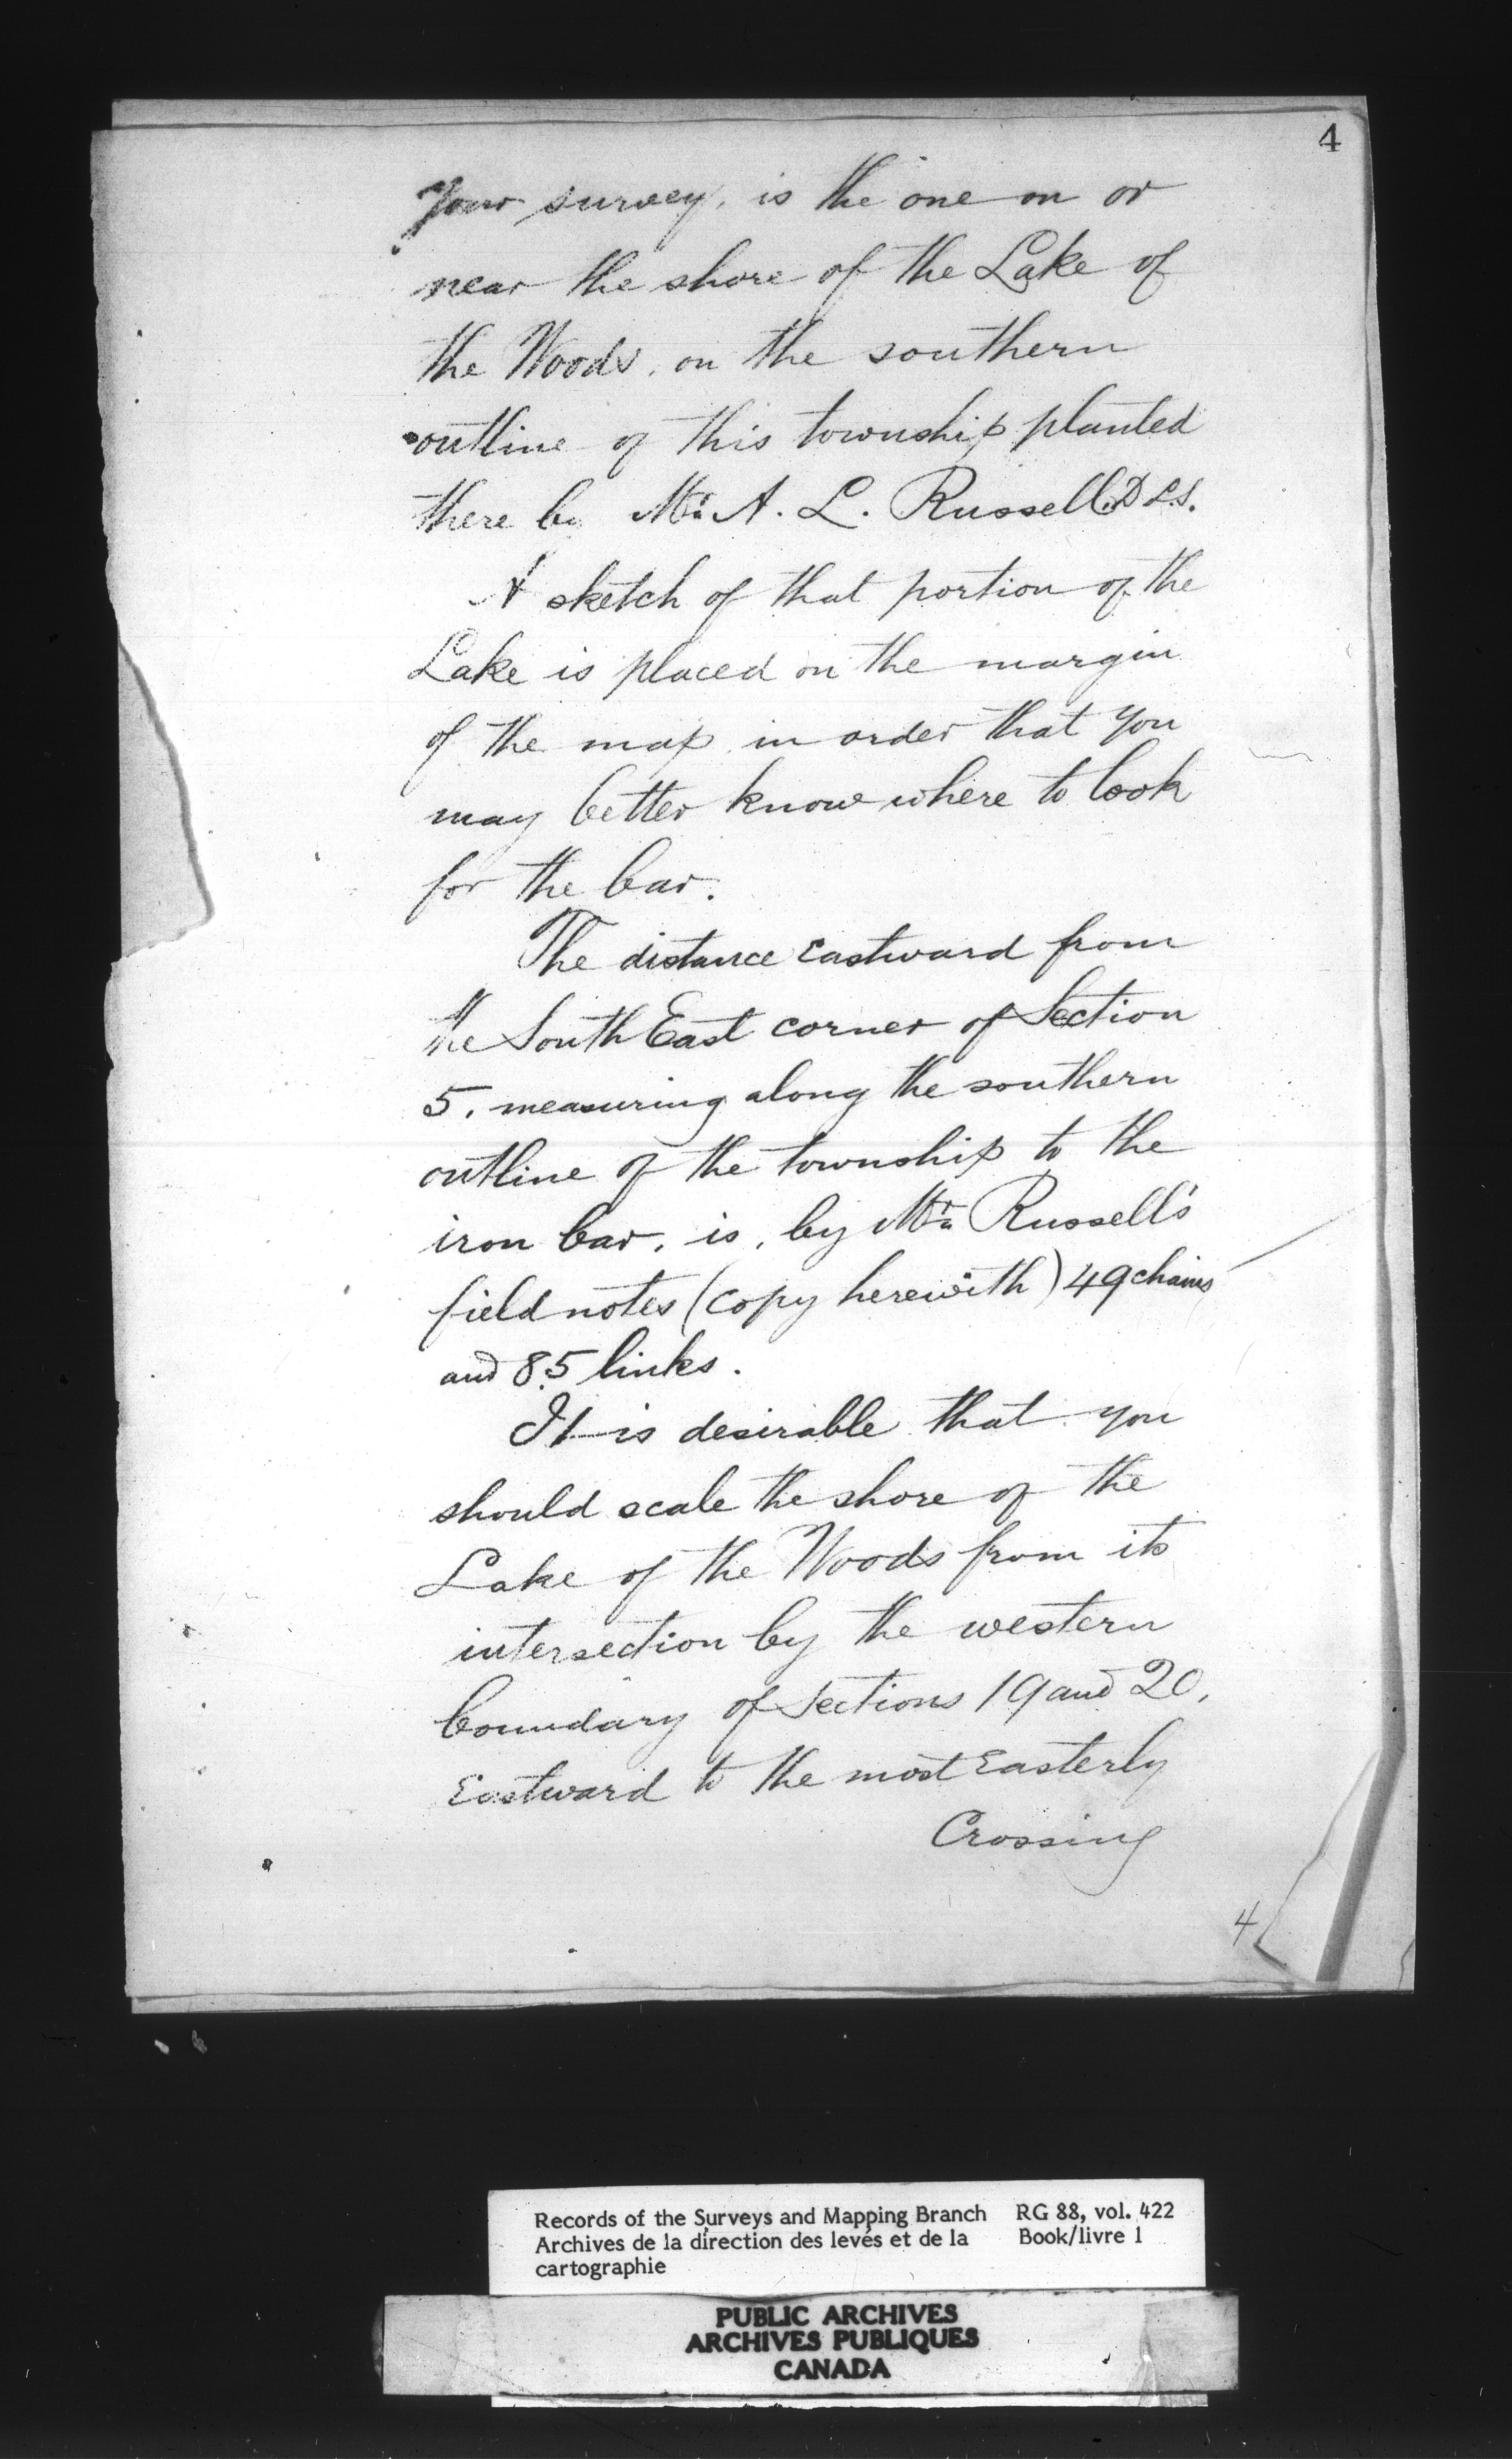 4
Your survey, is the one on or
near the shore of the Lake of
the Woods, on the southern
outline of this township planted
there by Mr. A. L. Russell. D L.S.
A sketch of that portion of the
Lake is placed on the margin
of the map in order that you
may better know where to look
for the bar.
The distance Eastward from
the South East corner of Section
5, measuring along the southern
outline of the township to the
iron bar, is, by Mr. Russell's
field notes (copy herewith) 49 chains
and 85 links.
It is desirable that you
should scale the shore of the
Lake of the Woods from its
intersection by the western
boundary of Sections 19 and 20,
Eastward to the most Easterly
Crossing
4
Records of the Surveys and Mapping Branch RG 88, vol. 422
Archives de la direction des levés et de la Book/livre 1
cartographie
PUBLIC ARCHIVES
ARCHIVES PUBLIQUES
CANADA